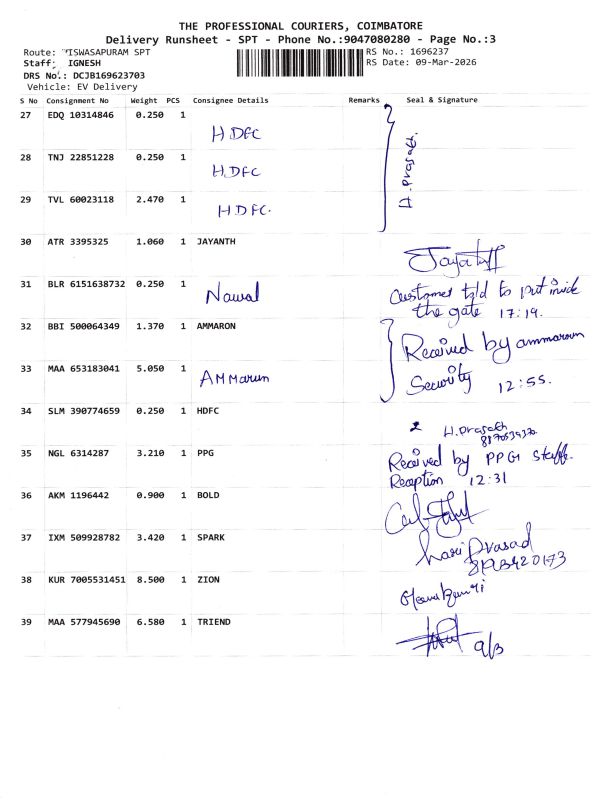 THE PROFESSIONAL COURIERS, COIMBATORE
Delivery Runsheet - SPT - Phone No.:9047080280 - Page No.:3
Route: ISWASAPURAM SPT RS No.: 1696237
Staff: IGNESH RS Date: 09-Mar-2026
DRS No.: DCJB169623703
Vehicle: EV Delivery
S No Consignment No Weight PCS Consignee Details Remarks Seal & Signature
27 EDQ 10314846 0.250 1 HDFC
28 TNJ 22851228 0.250 1 HDFC
29 TVL 60023118 2.470 1 HDFC.
H.Prasath
30 ATR 3395325 1.060 1 JAYANTH
31 BLR 6151638732 0.250 1 Nawal Customer told to put inside
the gate 17:19.
32 BBI 500064349 1.370 1 AMMARON Received by ammaroun
33 MAA 653183041 5.050 1 AMMarun Security 12:55.
34 SLM 390774659 0.250 1 HDFC H.Prasath
35 NGL 6314287 3.210 1 PPG Received by PPG Staff.
Reception 12:31
36 AKM 1196442 0.900 1 BOLD
37 IXM 509928782 3.420 1 SPARK Hari Prasad
38 KUR 7005531451 8.500 1 ZION
39 MAA 577945690 6.580 1 TRIEND 9/3